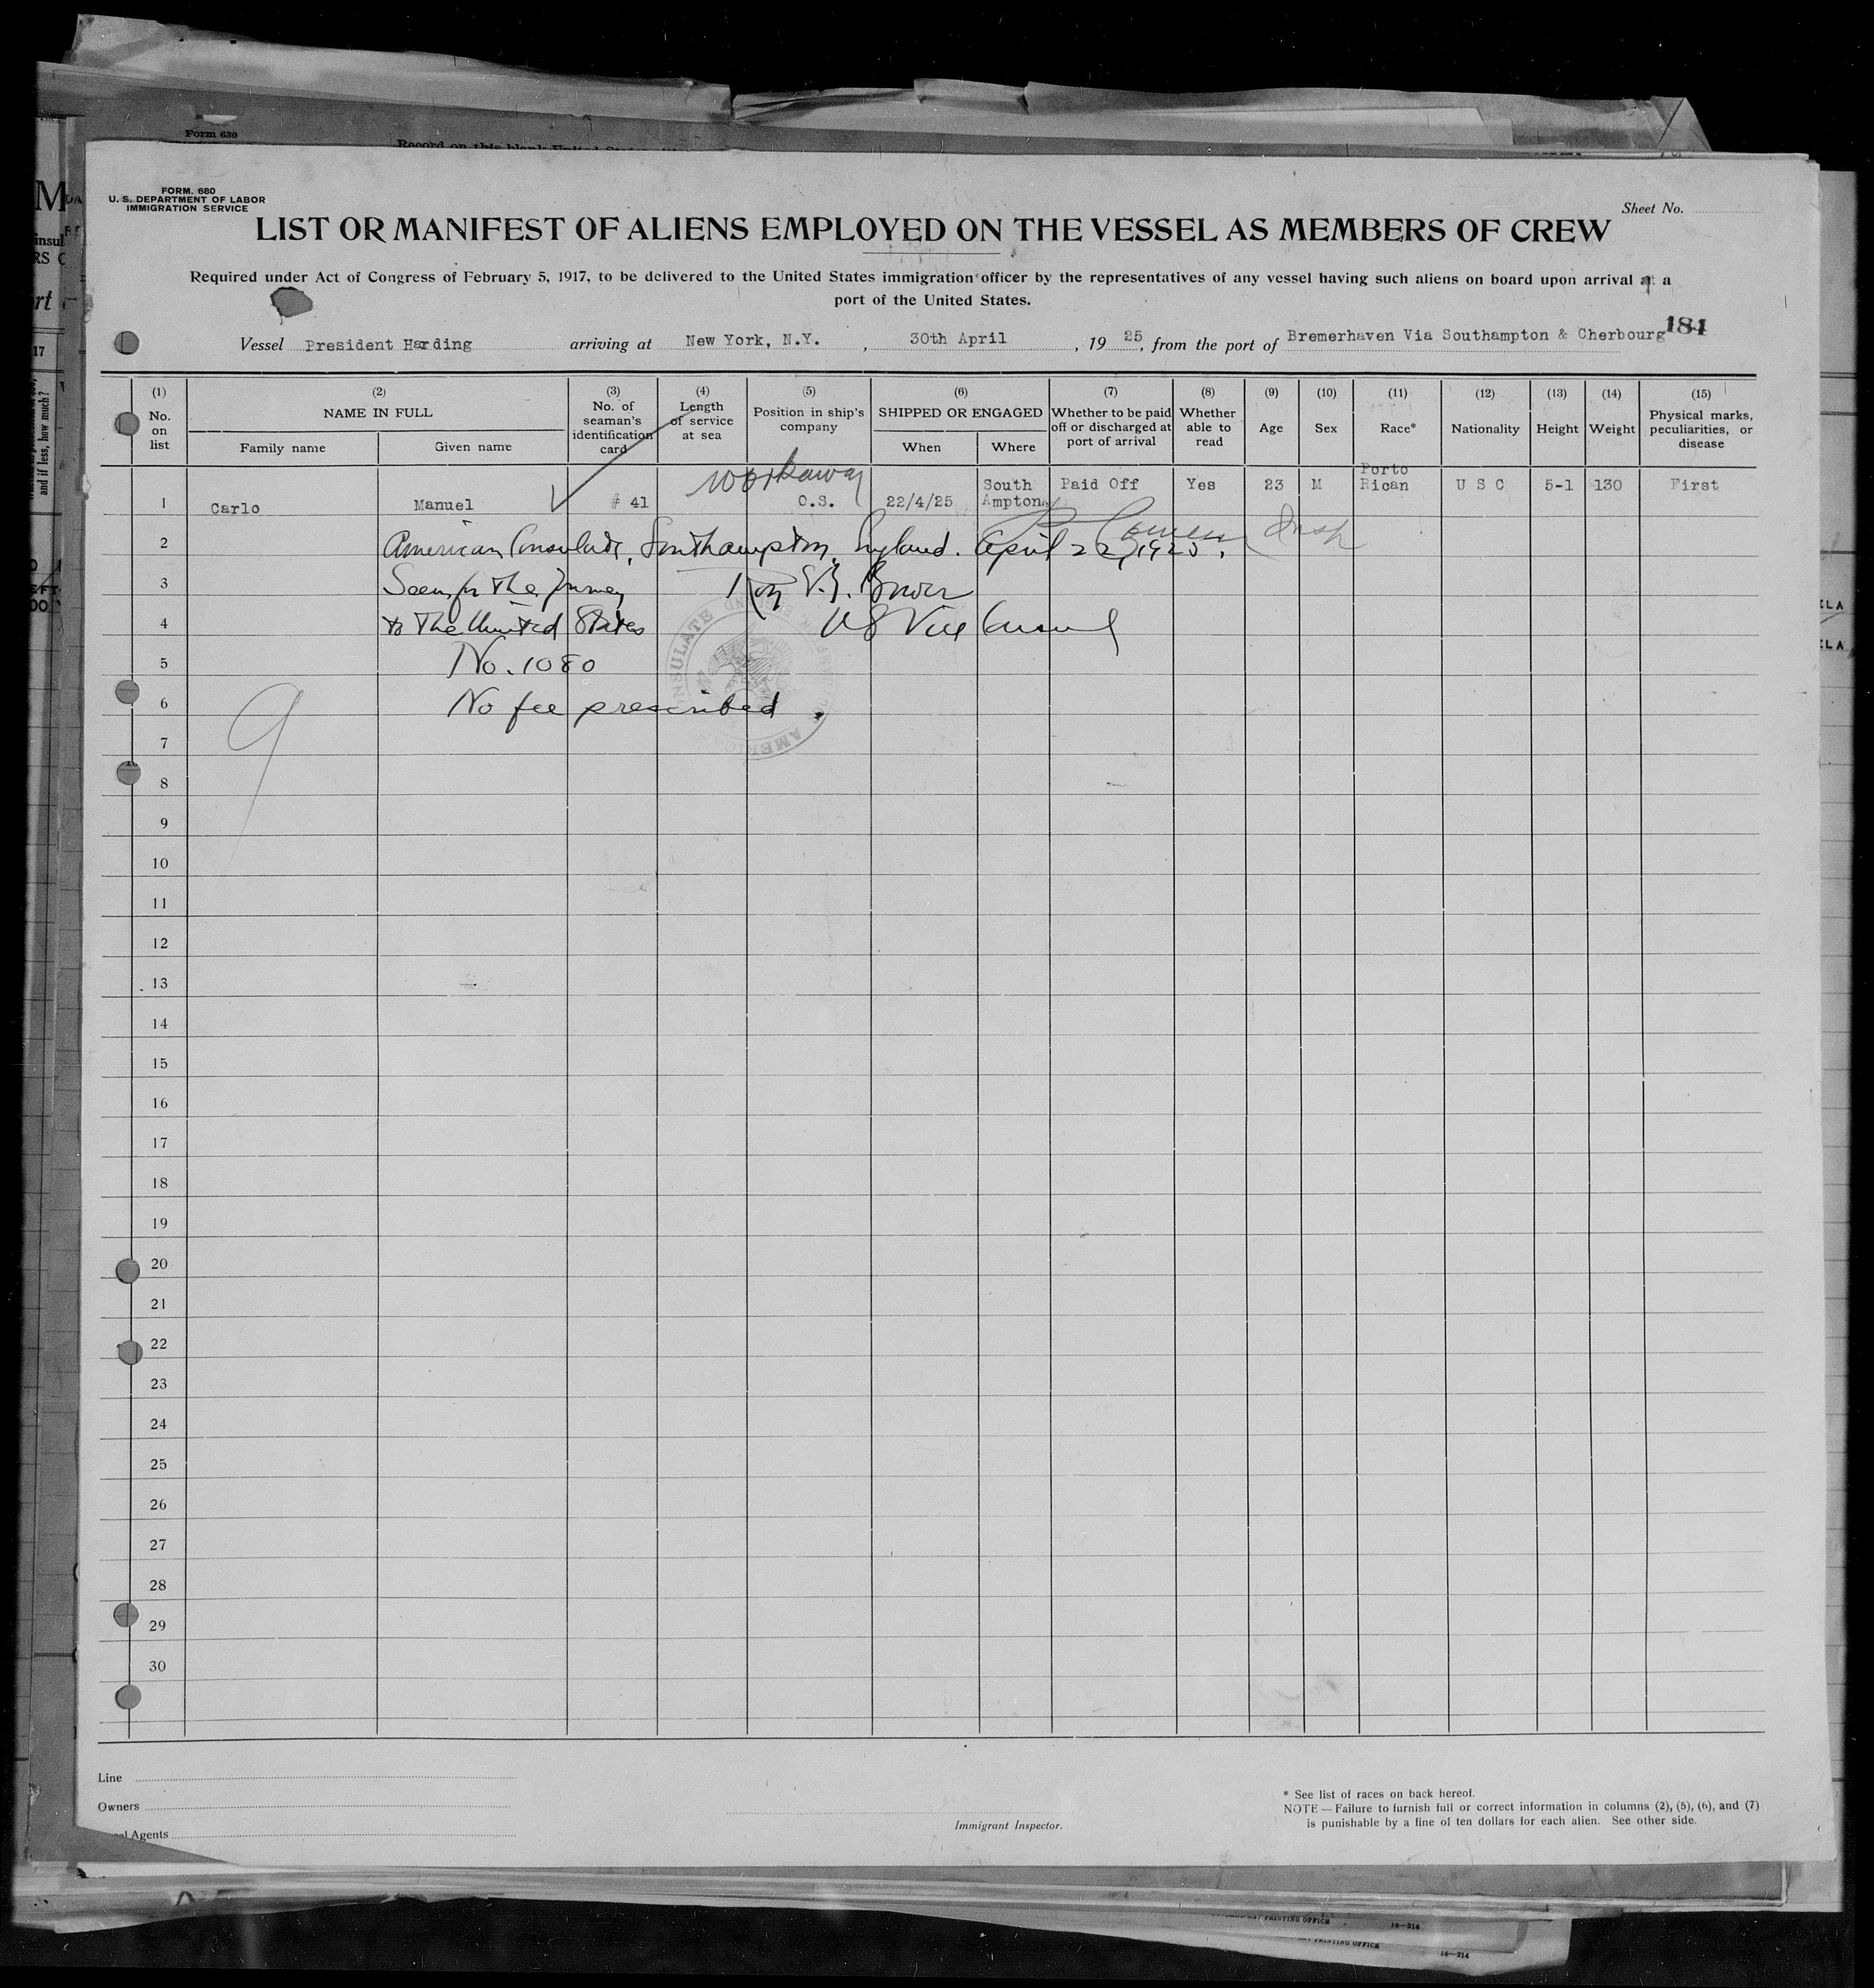 Form 630
Record on this blank United
FORM. 680
U. S. DEPARTMENT OF LABOR
IMMIGRATION SERVICE
Sheet No.
LIST OR MANIFEST OF ALIENS EMPLOYED ON THE VESSEL AS MEMBERS OF CREW
Required under Act of Congress of February 5, 1917, to be delivered to the United States immigration officer by the representatives of any vessel having such aliens on board upon arrival at a
port of the United States.
184
Vessel President Harding arriving at New York, N.Y. , 30th April , 19 25, from the port of Bremerhaven Via Southampton & Cherbourg
(1) (2) (3) (4) (5) (6) (7) (8) (9) (10) (11) (12) (13) (14) (15)
No. on list
NAME IN FULL
Family name Given name
No. of seaman's identification card
Length of service at sea
Position in ship's company
SHIPPED OR ENGAGED
When Where
Whether to be paid off or discharged at port of arrival
Whether able to read
Age
Sex
Race*
Nationality
Height
Weight
Physical marks, peculiarities, or disease
workaway
1 Carlo Manuel # 41 O.S. 22/4/25 South Ampton Paid Off Yes 23 M Porto Rican U S C 5-1 130 First
2 American Consulate, Southampton, England. April 22, 1925.
3 Seen for the Journey
4 to the United States US Vice Consul
5 No. 1080
6 No fee prescribed.
9
7
8
9
10
11
12
13
14
15
16
17
18
19
20
21
22
23
24
25
26
27
28
29
30
Line
Owners
Agents
Immigrant Inspector.
* See list of races on back hereof.
NOTE — Failure to furnish full or correct information in columns (2), (5), (6), and (7)
is punishable by a fine of ten dollars for each alien. See other side.
PRINTING OFFICE 14—214
PRINTING OFFICE 14—214